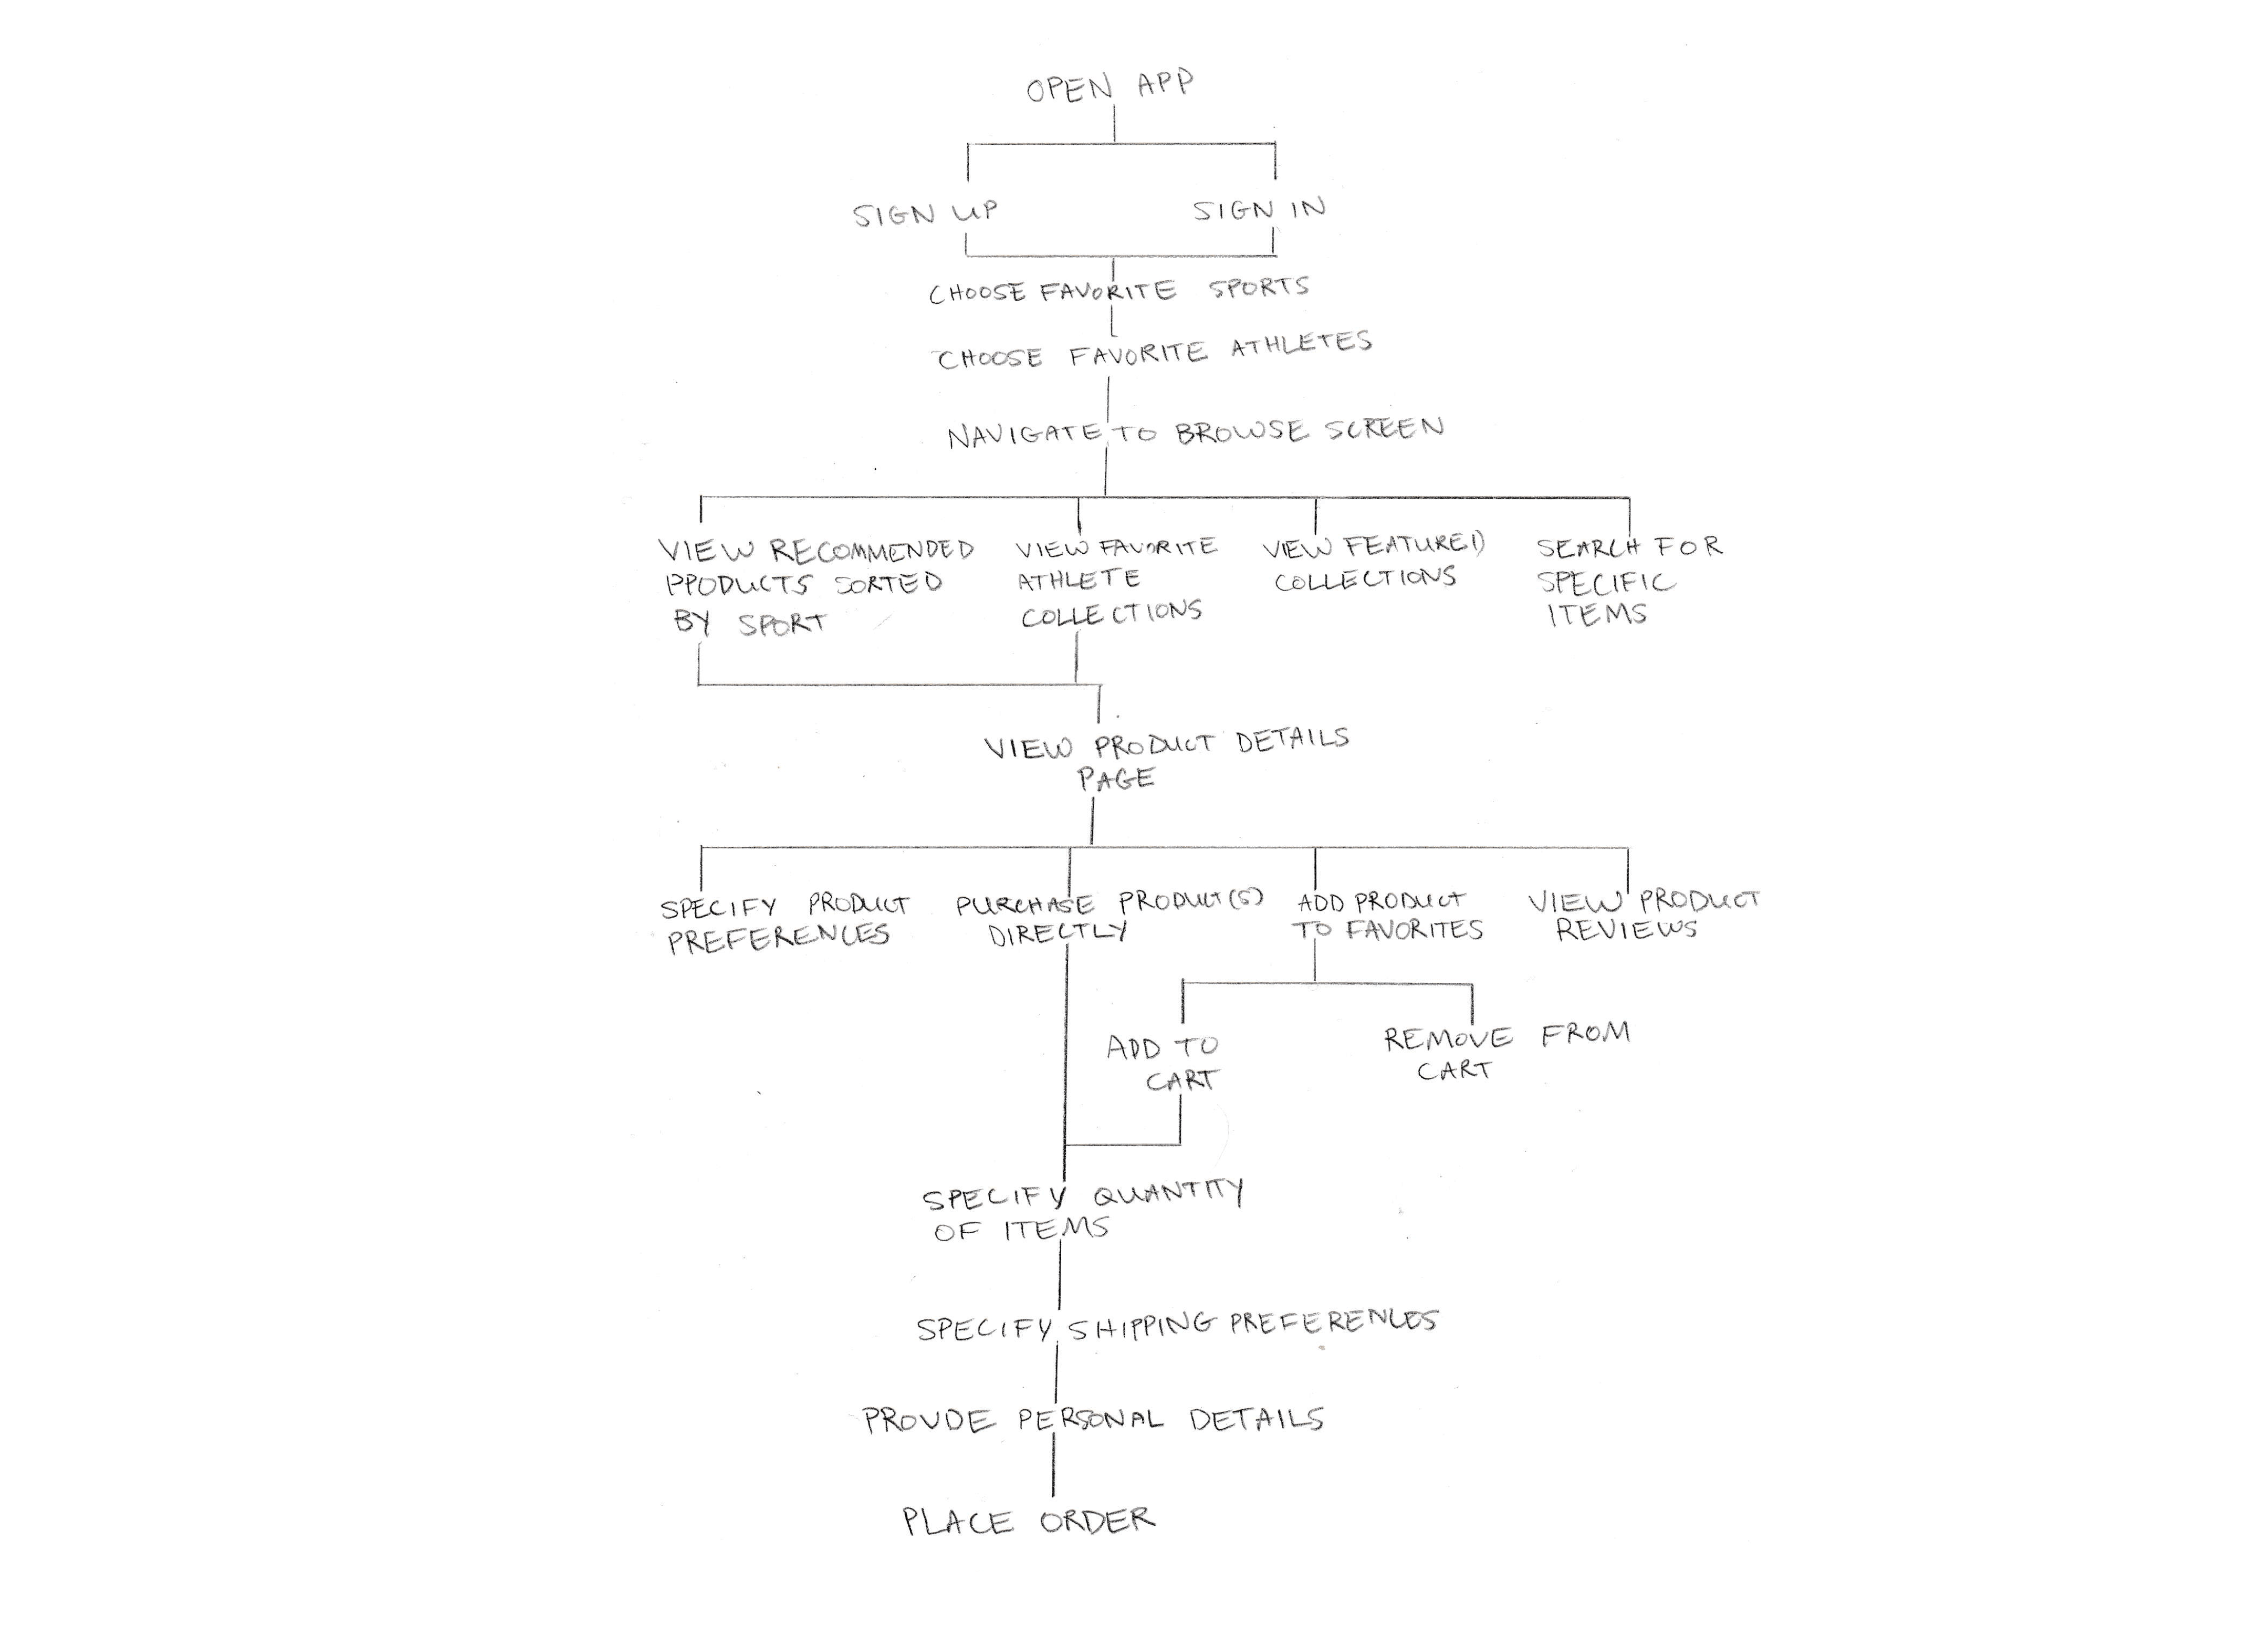 OPEN APP
SIGN UP
SIGN IN
CHOOSE FAVORITE SPORTS
CHOOSE FAVORITE ATHLETES
NAVIGATE TO BROWSE SCREEN
VIEW RECOMMENDED
PRODUCTS SORTED
BY SPORT
VIEW FAVORITE
ATHLETE
COLLECTIONS
VIEW FEATURED
COLLECTIONS
SEARCH FOR
SPECIFIC
ITEMS
VIEW PRODUCT DETAILS
PAGE
SPECIFY PRODUCT
PREFERENCES
PURCHASE PRODUCT(S)
DIRECTLY
ADD PRODUCT
TO FAVORITES
VIEW PRODUCT
REVIEWS
ADD TO
CART
REMOVE FROM
CART
SPECIFY QUANTITY
OF ITEMS
SPECIFY SHIPPING PREFERENCES
PROVDE PERSONAL DETAILS
PLACE ORDER